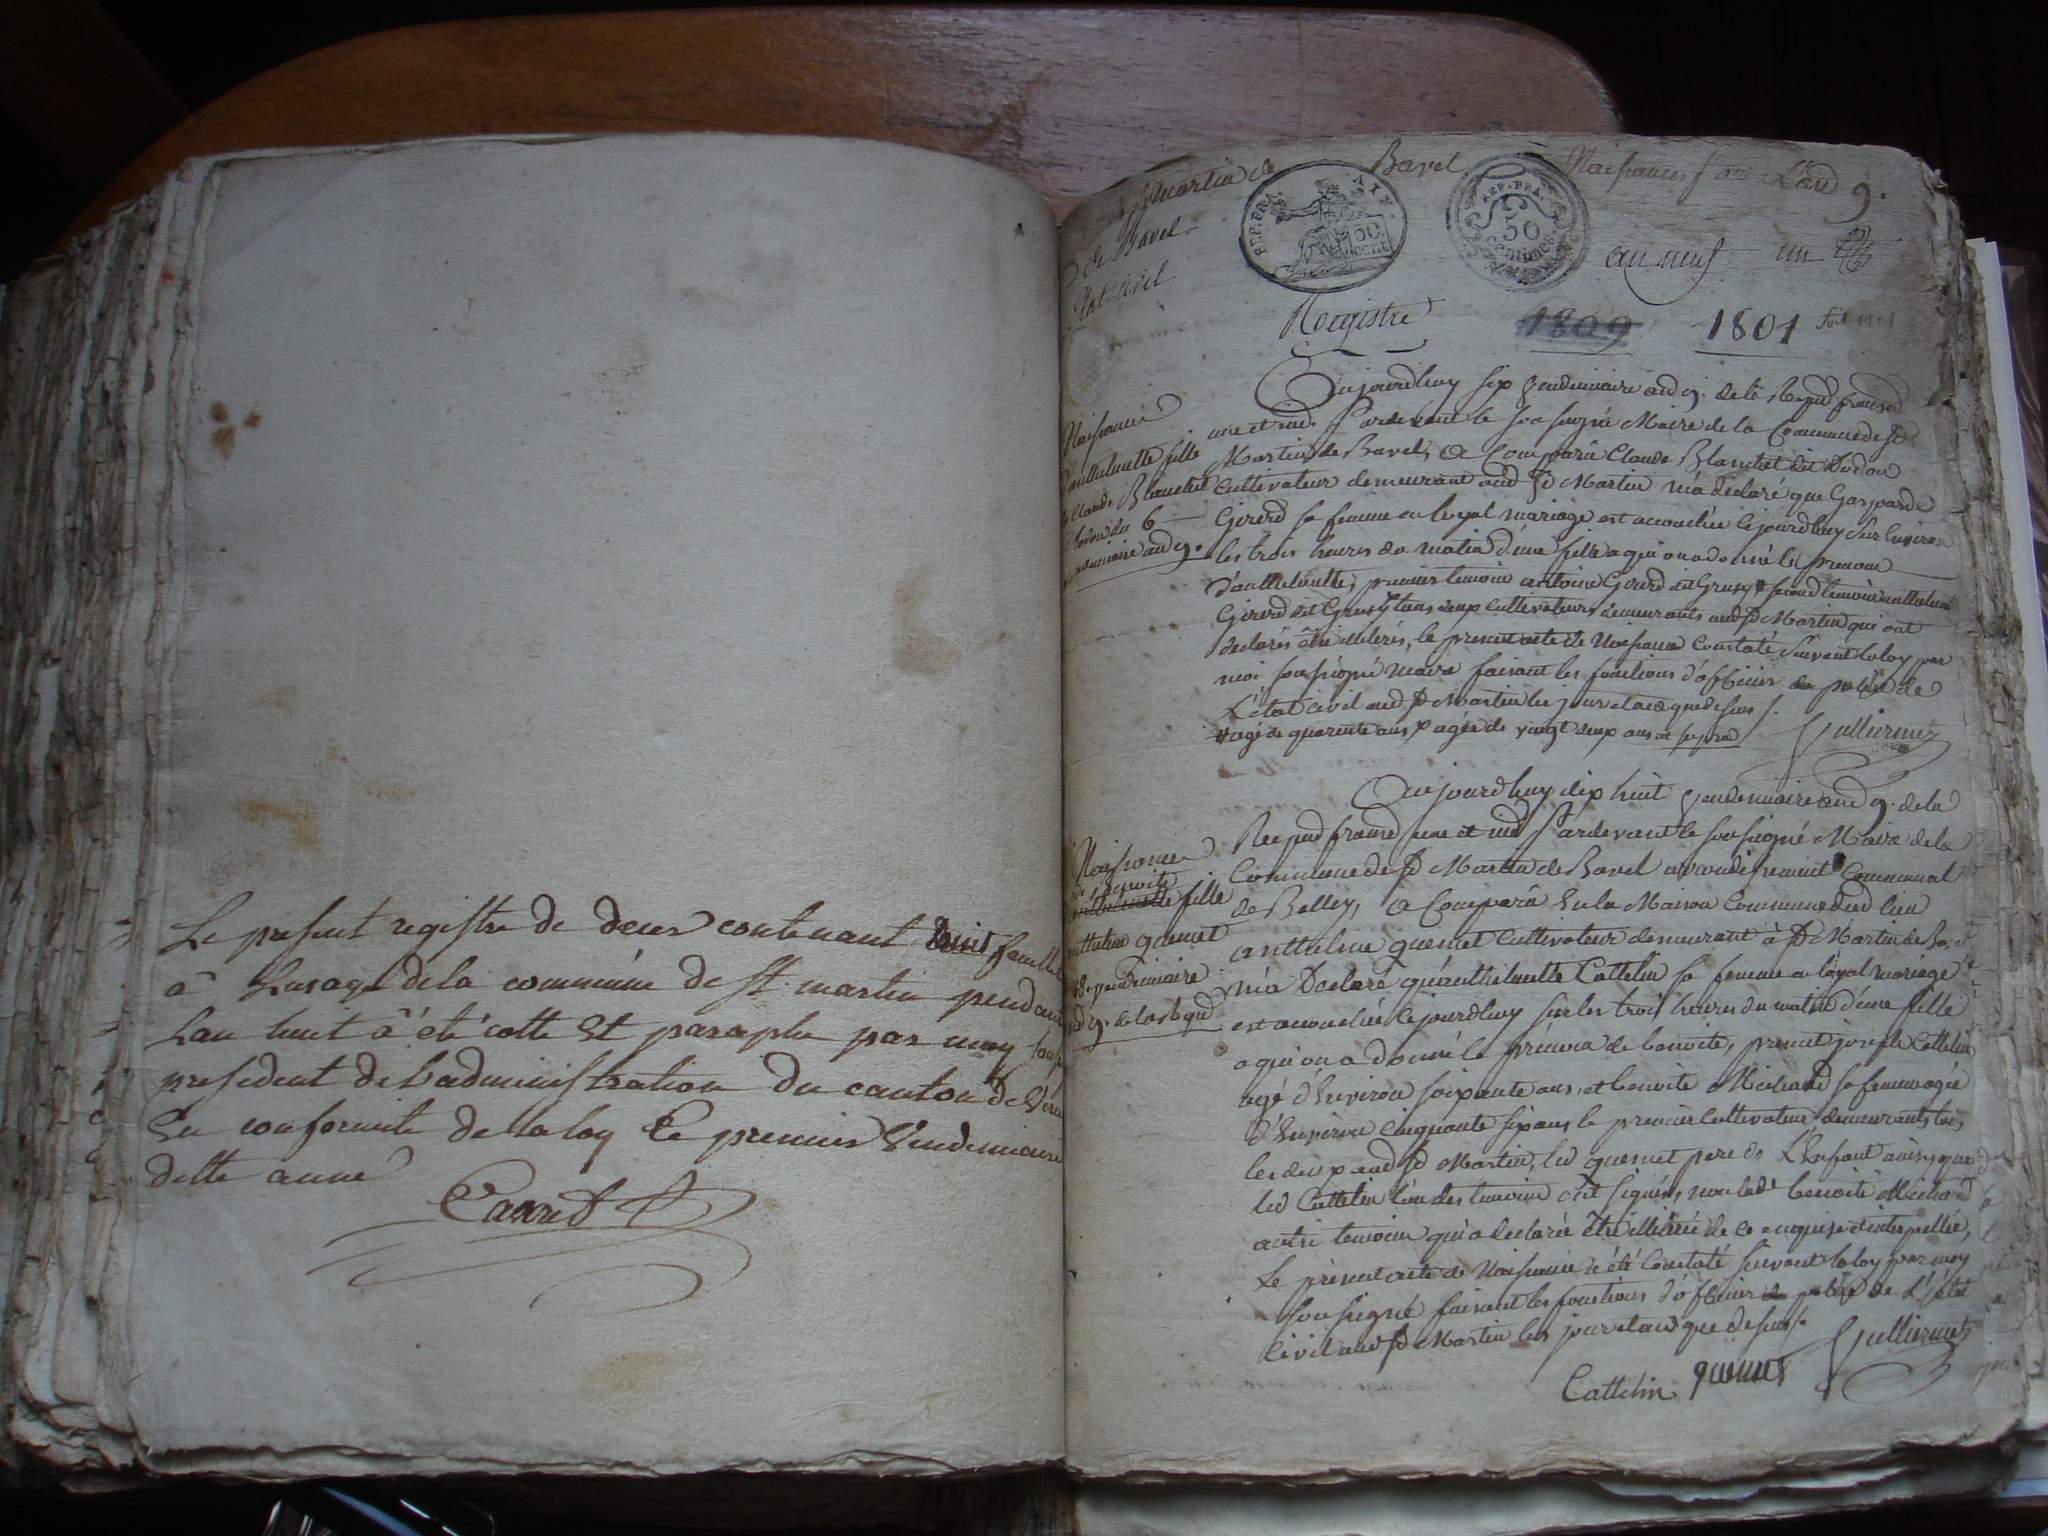 Le present registre de deux contenant huit feuillet
à Lusage de la commune de st. martin pendant
Lan huit à été cotte Et paraphe par moy
president de l'administration du canton de
En conformité de la loy Le premier Vendemiaire
dette anné
Carrié
St martin de Bavel Naissances an 9.
de Bavel
Etat civil
REP. FRA. AIN.
50. cent
REP. FRA.
50
centimes
an neuf un
Registre 1809 1801
Naissance
d'anthelmette fille
de Claude Blanchet
dodon du 6
vendemiaire an 9.
Aujourdhuy six Vendemiaire an 9. de la Repud fransd
une et ind. Pardevant le soussigné Maire de la Commune de St
Martin de Bavel, a Comparu Claude Blanchet dit Dodon
cultivateur demeurant aud St Martin m'a déclaré que Gasparde
Girerd sa femme en legal mariage est accouchée cejourdhuy sur Environ
les trois heures du matin d'une fille a qui on a donné le prenom
d'anthelmette, premier temoin antoine Girerd dit Grusy second temoin anthelme
Girerd dit Grusy tous deux cultivateurs demeurants aud St Martin qui ont
declarés être illiterés, le present acte de Naissance Constaté Suivant la loy par
moi soussigné maire faisant les fonctions d'officier de public de
L'état civil aud St Martin les jour et an que dessus.
agé de quarente ans agée de vingt deux ans
Gulliermet
Naissance
de benoite
anthelmette fille
anthelme quemet
vendemiaire
9. de la Repud
Aujourdhuy dix huit Vendemiaire and 9. de la
Repud fransd une et ind Pardevant le soussigné Maire de la
Commune de St Martin de Bavel arrondissement Communal
de Belley, a Comparu En la Maison Commune dud lieu
anthelme quemet Cultivateur demeurant à St Martin de Bavel
m'a Declaré qu'anthelmette Cattelin sa femme en légal mariage
est accouchée cejourdhuy sur les trois heures du matin d'une fille
a qui on a donné le prénom de benoite, present joseph Cattelin
agé d'Environ soixante ans, et benoite Michaud sa femme agée
d'Environ cinquante six ans le premier cultivateur demeurants tous
les deux aud St Martin, led quemet pere de L'Enfant ainsy que
led Cattelin l'un des temoins ont signés, non lade benoite Michaud
autre temoin qui a declarée être illitérée de ce enquise et interpellée,
Le présent acte de Naissance a été Constaté suivant la loy par moy
soussigné faisant les fonctions d'officier de public de L'état
civil aud St Martin les jour et an que dessus.
Gulliermet
Cattelin quemet